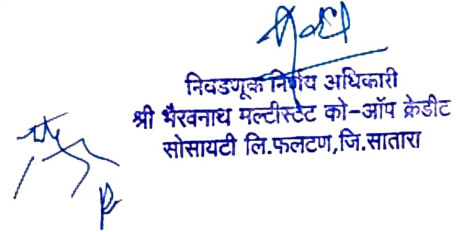 निवडणूक निर्णय अधिकारी
श्री भैरवनाथ मल्टीस्टेट को-ऑप क्रेडीट
सोसायटी लि.फलटण,जि.सातारा